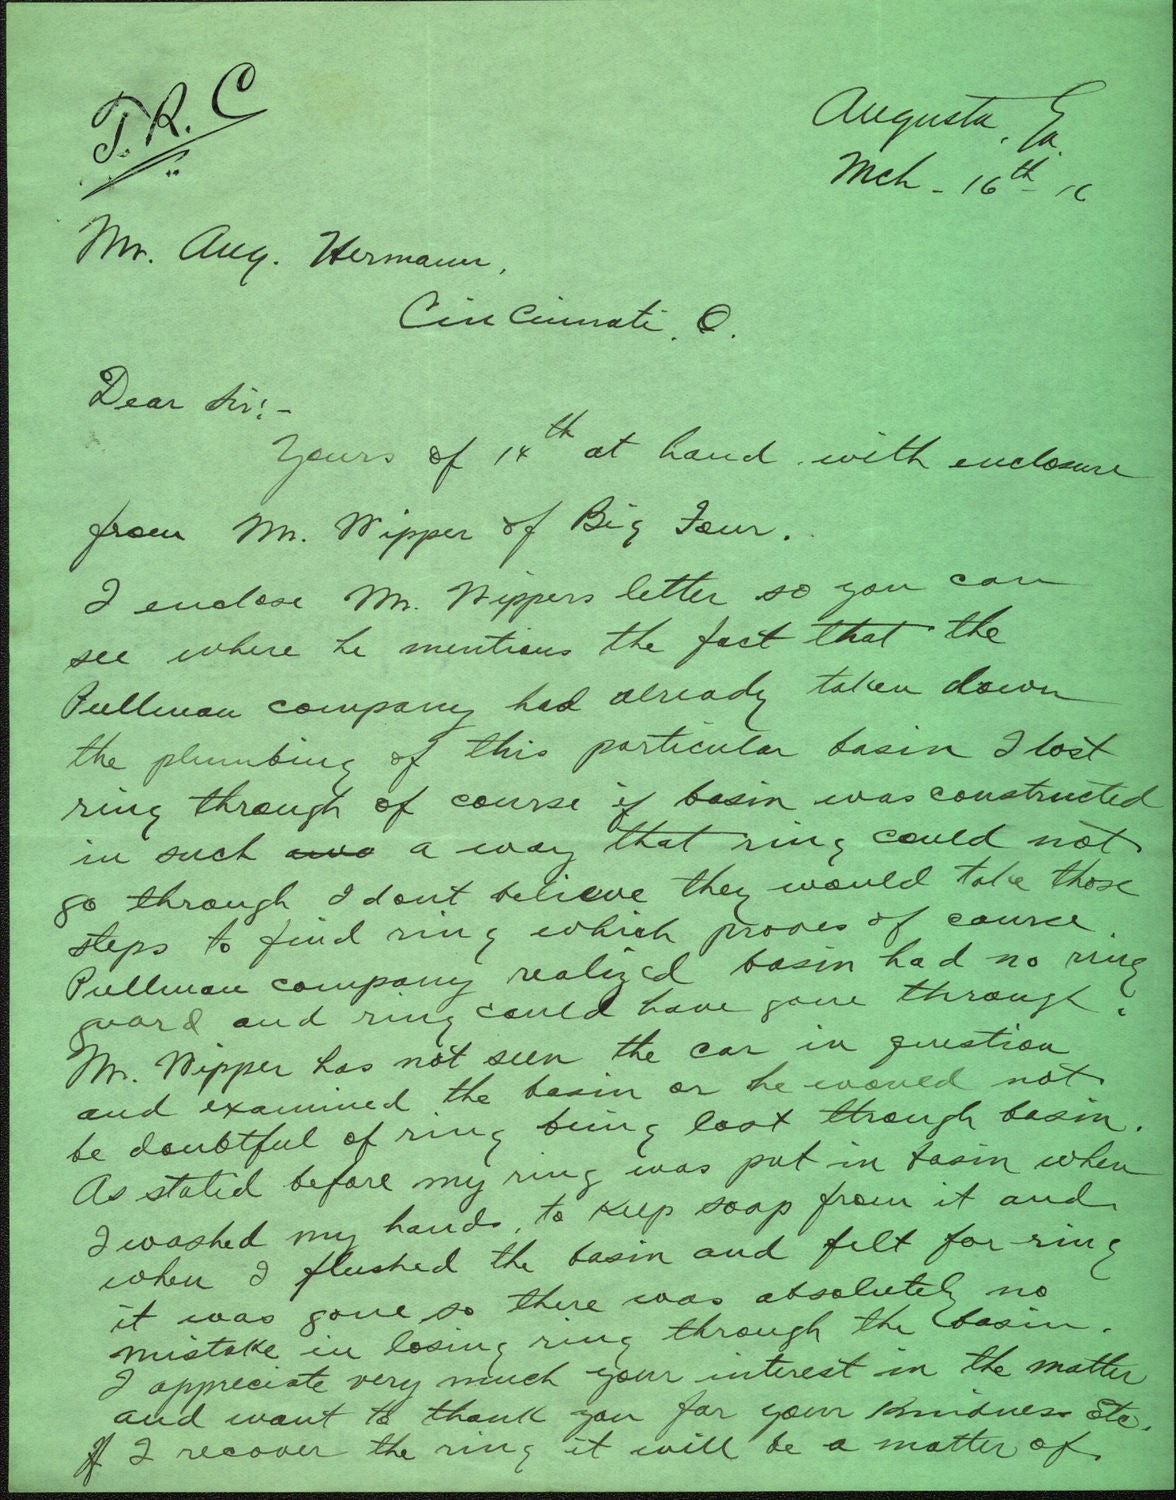 T.R.C
Augusta, Ga.
Mch - 16th - 16
Mr. Aug. Hermann,
Cincinnati, O.
Dear Sir:-
Yours of 14th at hand with enclosure
from Mr. Wipper of Big Four.
I enclose Mr. Wippers letter so you can
see where he mentions the fact that the
Pullman company had already taken down
the plumbing of this particular basin I lost
ring through of course if basin was constructed
in such a way that ring could not
go through I dont believe they would take those
steps to find ring which proves of course
Pullman company realized basin had no ring
guard and ring could have gone through.
Mr. Wipper has not seen the car in question
and examined the basin or he would not
be doubtful of ring being lost through basin.
As stated before my ring was put in basin when
I washed my hands, to keep soap from it and
when I flushed the basin and felt for ring
it was gone so there was absolutely no
mistake in losing ring through the basin.
I appreciate very much your interest in the matter
and want to thank you for your kindness etc.
If I recover the ring it will be a matter of